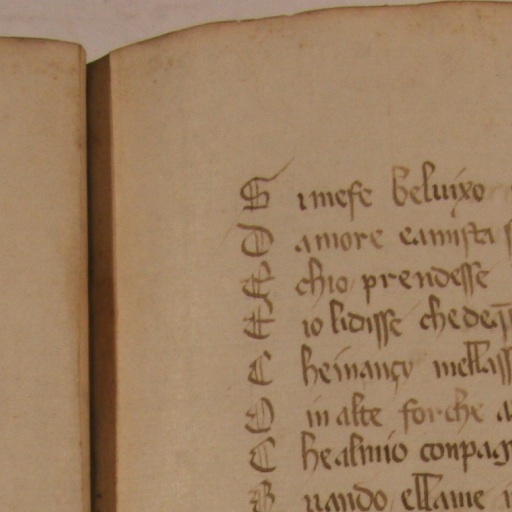 S imese beluixo
D amore eamista
E chio prendesse
E io lidisse chedeq̅
C heinançi mellass
D in alte forche a
C healmio conpag
B rando ellame